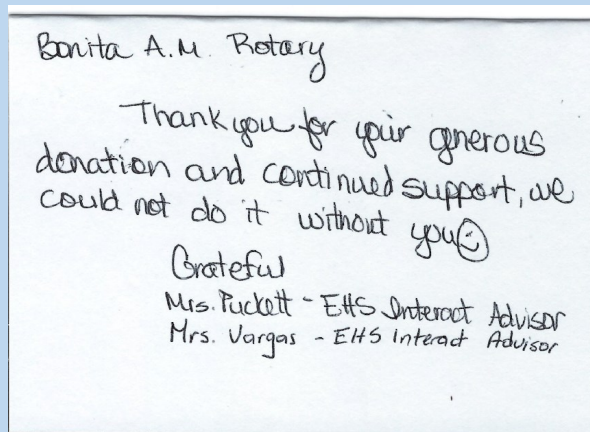 Bonita A.M. Rotary
Thank you for your gnerous
donation and continued support, we
could not do it without you
Grateful
Mrs. Puckett - EHS Interact Advisor
Mrs. Vargas - EHS Interact Advisor